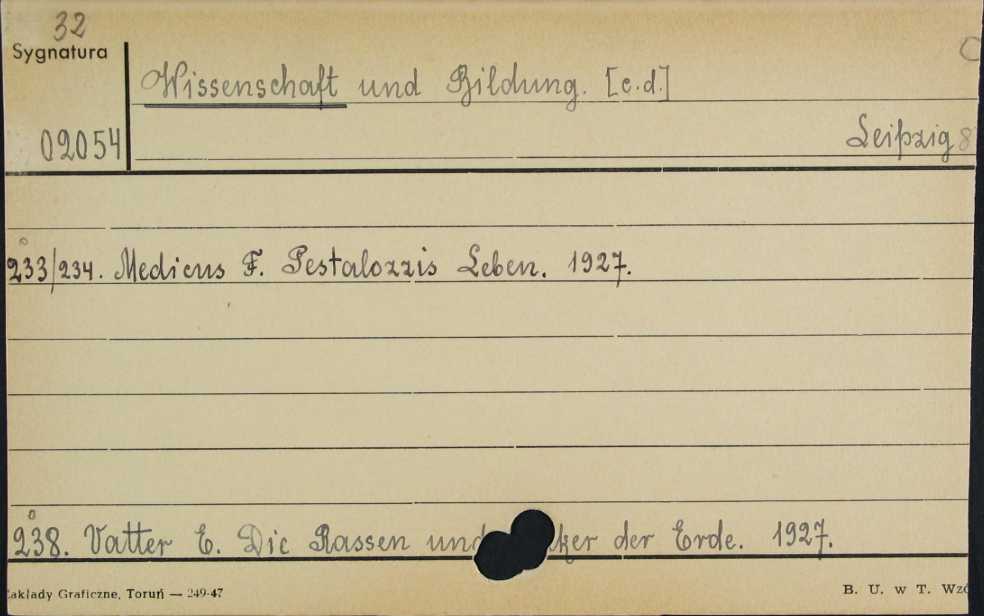 32
Sygnatura
Wissenschaft und Bildung. [c.d.]
02054
Leipzig 8
233/234. Medicus F. Pestalozzis Leben. 1927.
238. Vatter E. Die Rassen und ker der Erde. 1927.
Zakłady Graficzne, Toruń — 249-47
B. U. w T. Wzó